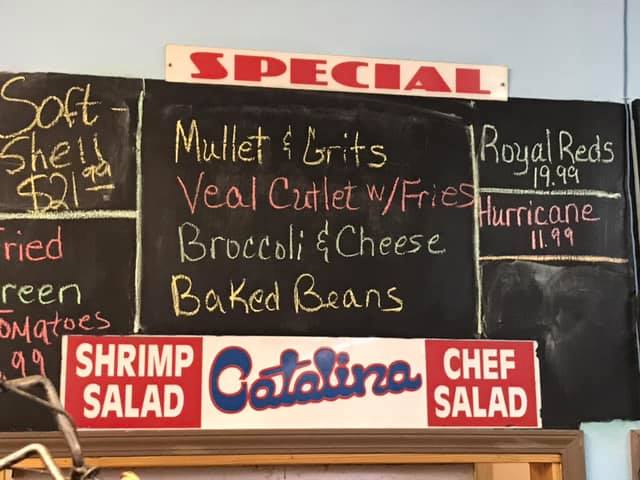 SPECIAL
Soft-
Shell
$21.99
Mullet & Grits
Veal Cutlet w/Fries
Broccoli & Cheese
Baked Beans
Royal Reds
19.99
Hurricane
11.99
ried
reen
omatoes
.99
SHRIMP
SALAD
Catalina
CHEF
SALAD